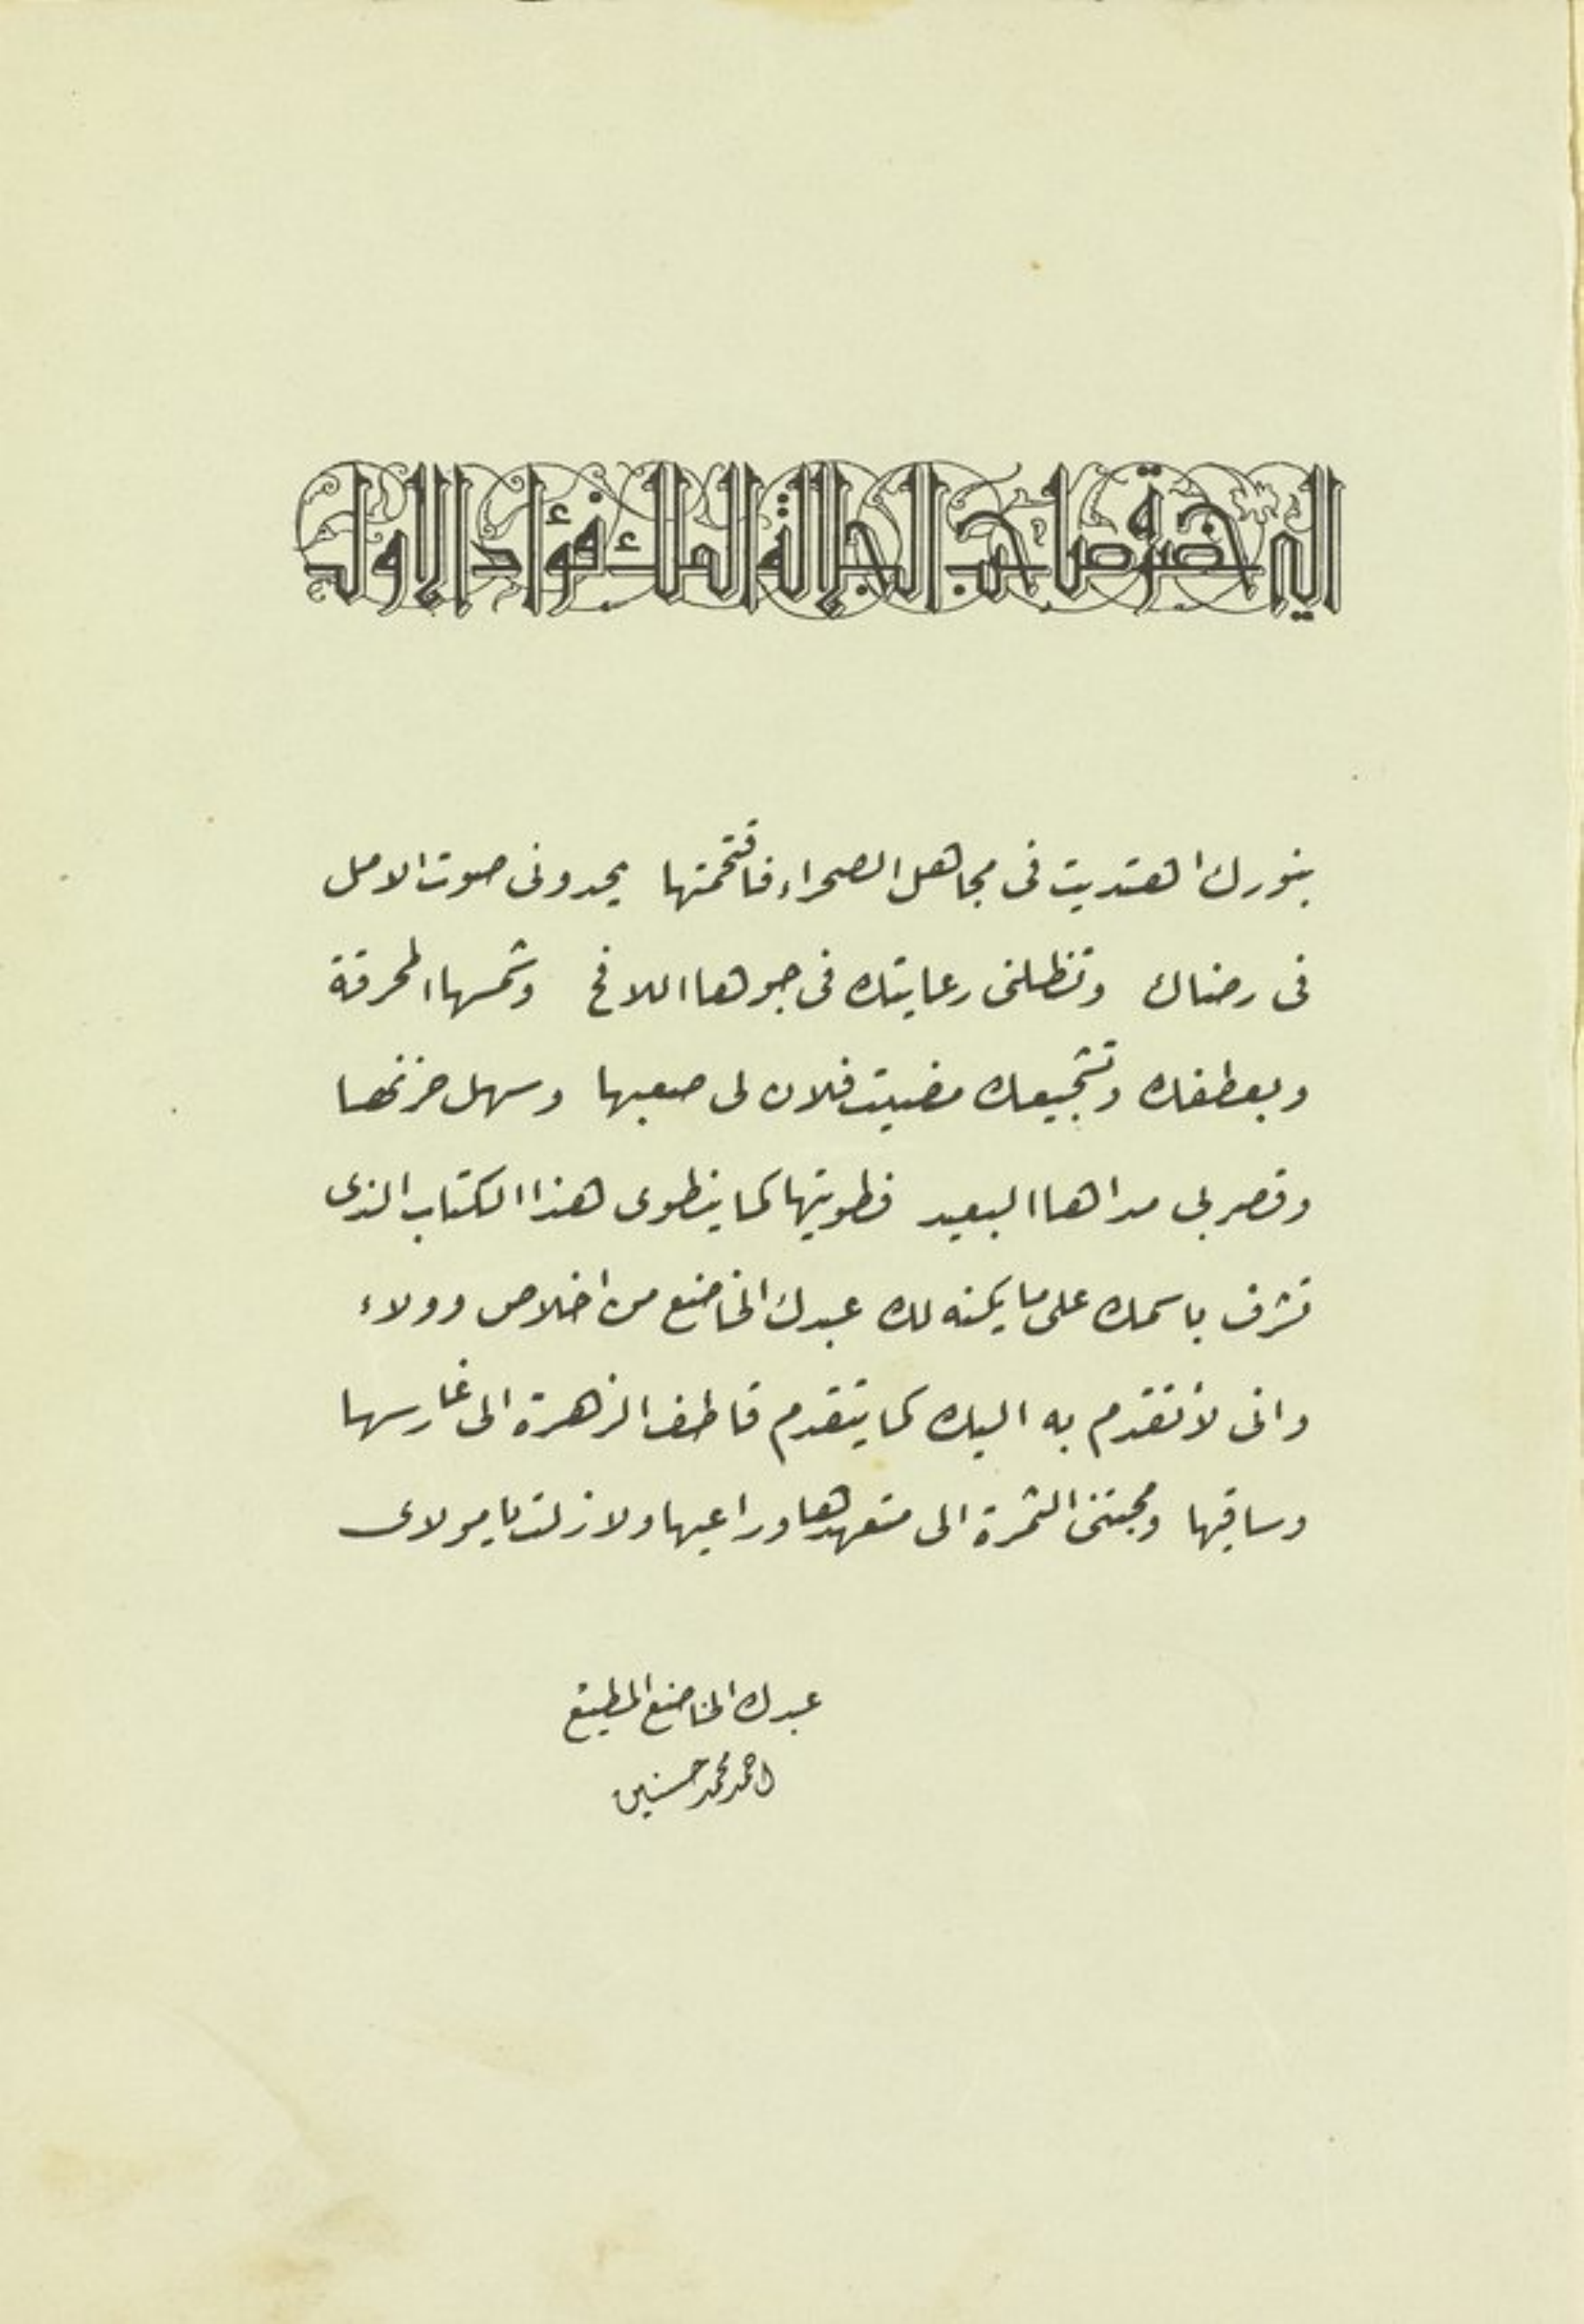 الى حضرة صاحب الجلالة الملك فؤاد الاول
بنورك اهتديت فى مجاهل الصحراء فاقتحمتها يحدونى صوت الامل
فى رضاك وتظلنى رعايتك فى جوها اللافح وشمسها المحرقة
وبعطفك وتشجيعك مضيت فلان لى صعبها وسهل حزنها
وقصر لى مداها البعيد فطويتها كما ينطوى هذا الكتاب الذى
تشرف باسمك على ما يكنه لك عبدك الخاضع من اخلاص وولاء
وانى لأتقدم به اليك كما يتقدم قاطف الزهرة الى غارسها
وساقيها ومجتنى الثمرة الى متعهدها وراعيها ولا زلت يا مولاى
عبدك الخاضع المطيع
احمد محمد حسنين